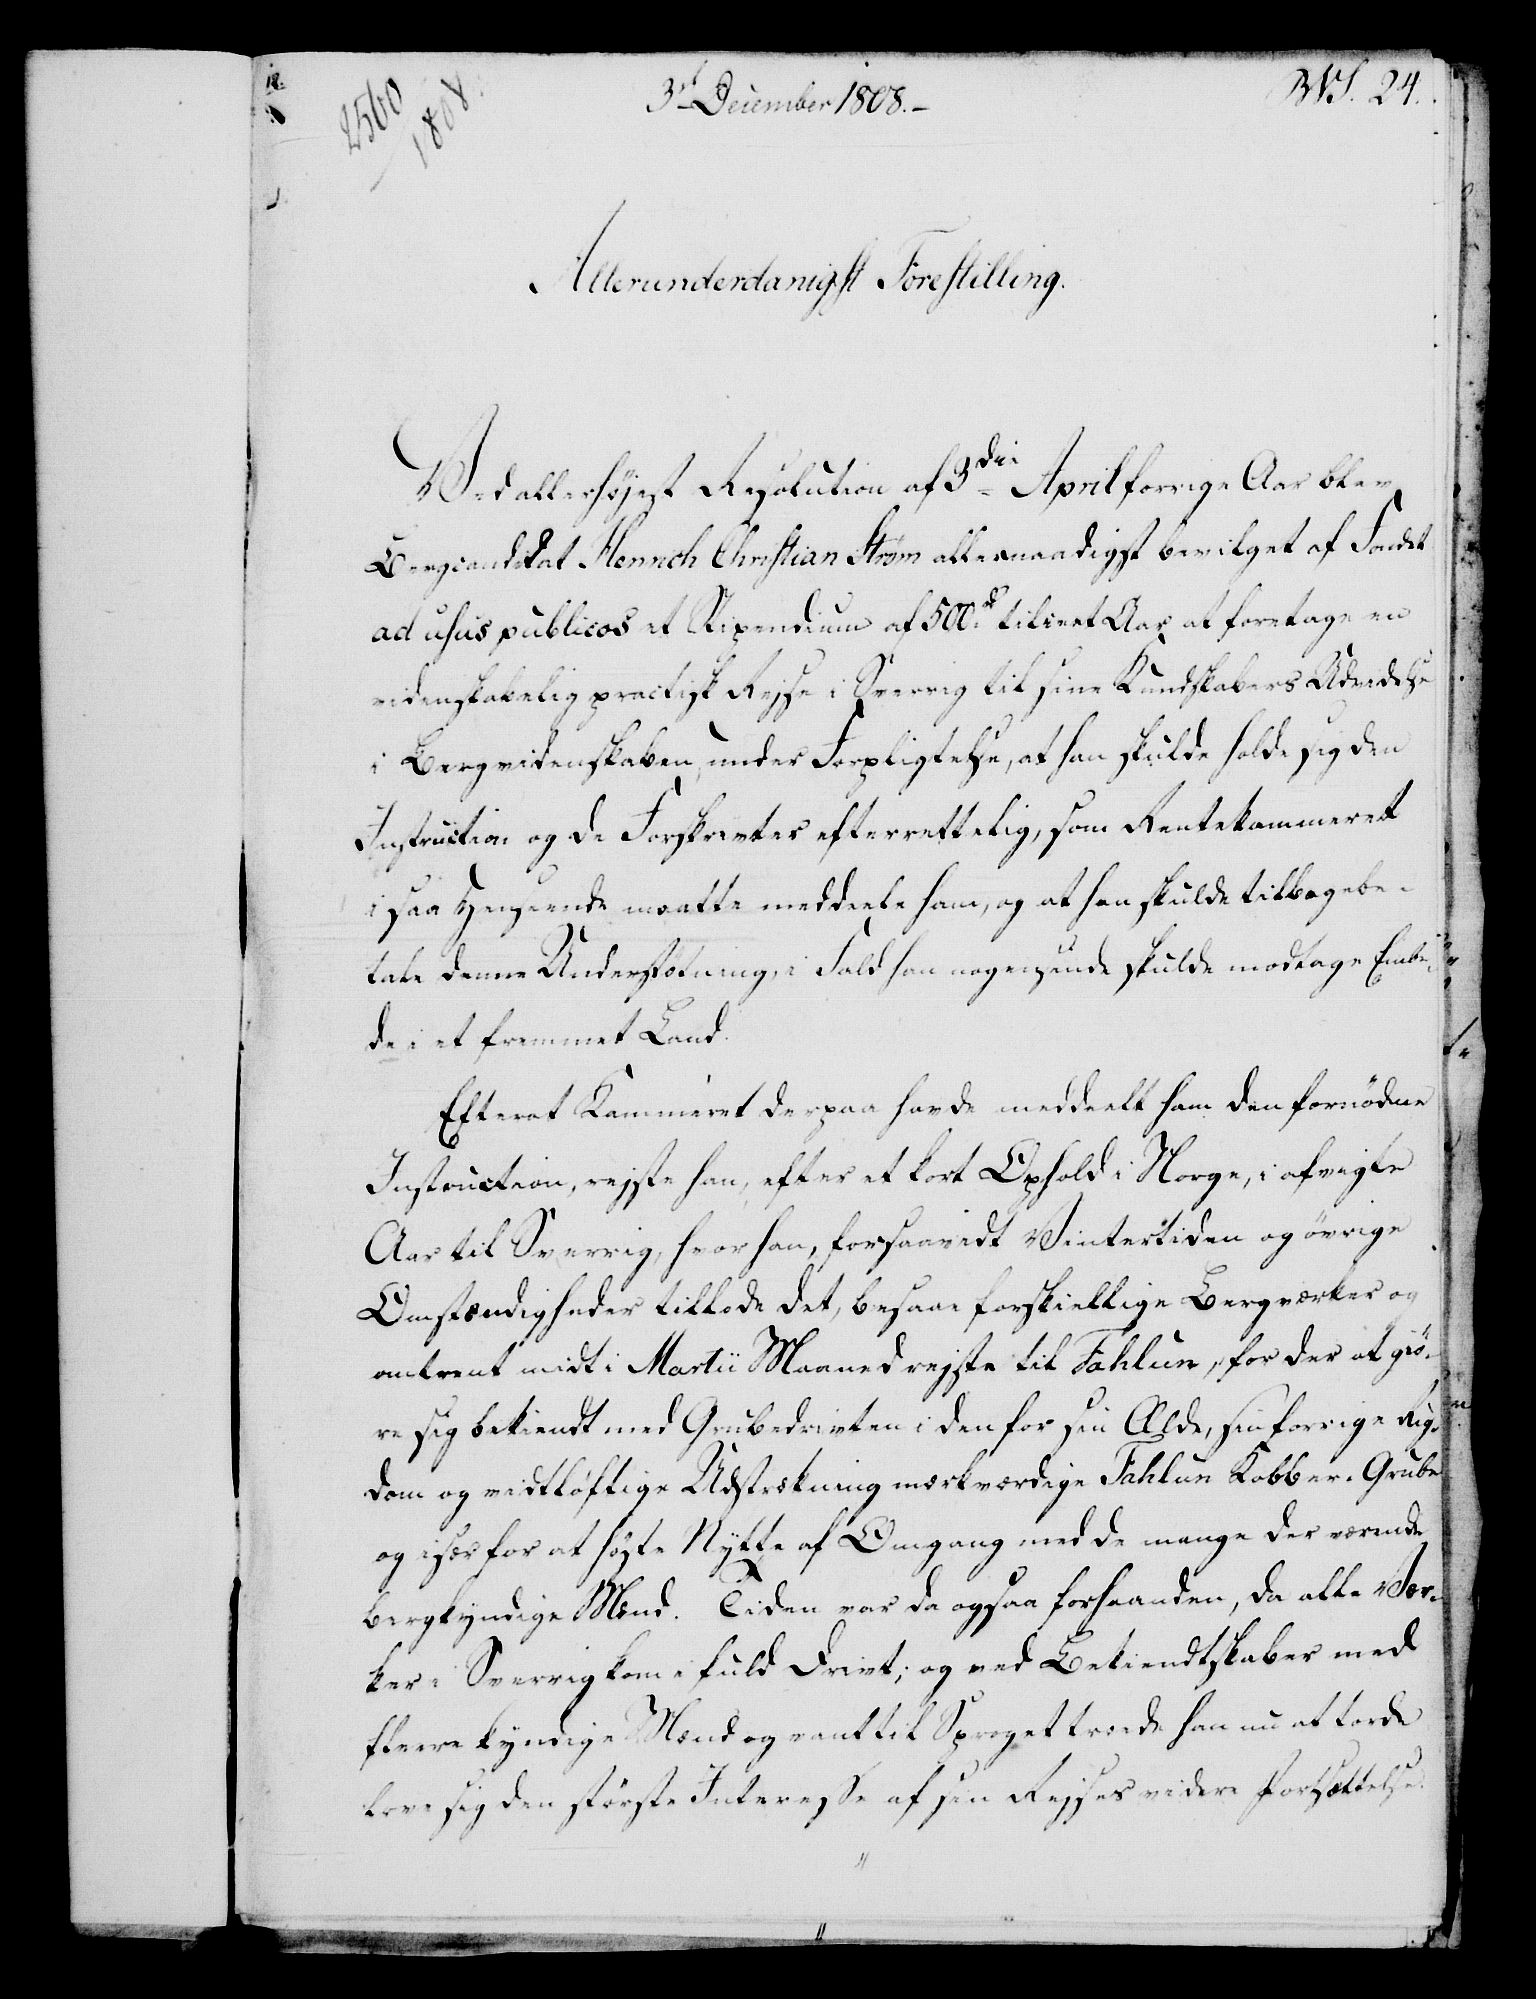 2560
1808.
3d December 1808.-
BVS. 24.
Allerunderdanigst Forestilling.
Ved allerhøjest Resolution af 3die April forrige Aar blev
Bergcandidat Henrich Christian Strøm allernaadigst bevilget af Fondet
ad usus publicos et Stipendium af 500 rd til i eet Aar at foretage en
videnskabelig practisk Rejse i Sverrig til sine Kundskabers Udvidelse
i Bergvidenskaben, under Forpligtelse, at han skulde holde sig den
Instruction og de Forskrivter efterrettelig, som Rentekammeret
i saa Henseende maatte meddeele ham, og at han skulde tilbagebe-
tale denne Understøtning, i Fald han nogensinde skulde modtage Embe-
de i et fremmet Land.
Efterat Kammeret derpaa havde meddeelt ham den fornödne
Instruction, rejste han, efter et kort Ophold i Norge, i afvigte
Aar til Sverrig, hvor han, forsaavidt Vintertiden og övrige
Omstændigheder tillode det, besaae forskiellige Bergværker og
omtrent midt i Martii Maaned rejste til Fahlun, for der at giö-
re sig bekiendt med Grubedrivten i den for sin Ælde, sin forrige Rig-
dom og vidtløftige Udstrækning mærkværdige Fahlun Kobber-Grube
og især for at høste Nytte af Omgang med de mange der værende
bergkyndige Mænd. Tiden var da ogsaa forhaanden, da alle Vær-
ker i Sverrig kom i fuld Drivt; og ved Bekiendtskaber med
fleere kyndige Mænd og vant til Sproget troede han nu at torde
love sig den störste Interesse af sin Rejses videre Fortsættelse.